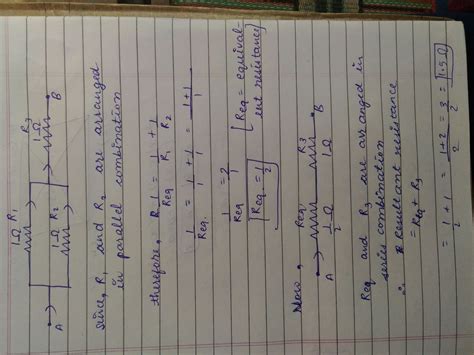 1Ω R1
1Ω R2
R3
1Ω
A
B
Since, R1 and R2 are arranged
in parallel combination
therefore, 1/Req = 1/R1 + 1/R2
1/Req. = 1/1 + 1/1 = 1+1/1
1/Req = 2/1 [Req = equival-
ent resistance]
Req. = 1/2
Now,
Req.
R3
A
1/2 Ω
1Ω
B
Req and R3 are arranged in
series combination
∴ Resultant resistance
= Req + R3
= 1/2 + 1 = 1+2/2 = 3/2 = 1.5Ω